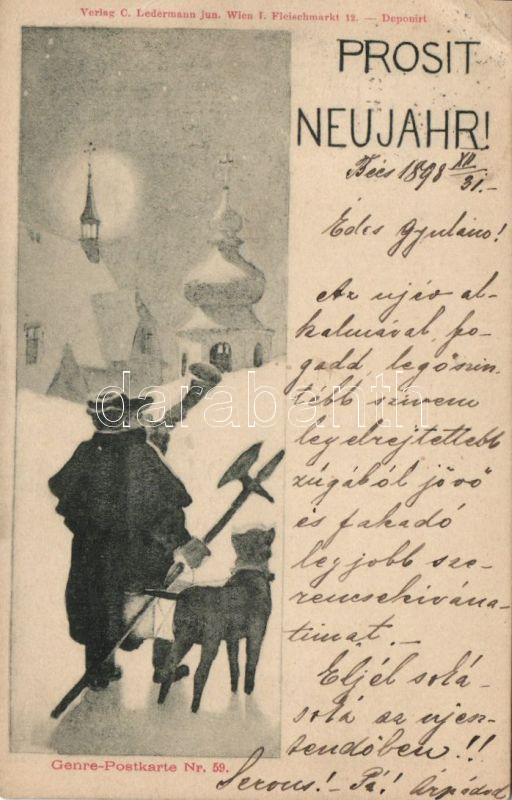 Verlag C. Ledermann jun. Wien I. Fleischmarkt 12. — Deponirt
PROSIT
NEUJAHR!
Bécs 1898 XII/31.-
Édes Gyuláno!
Az ujév al-
kalmával, fo-
gadd, legőszin-
tébb szivem
legelrejtettebb
zúgából jövő
és fakadó
legjobb sze-
rencsekivána-
timat. -
Éljél soká-
soká az ujesz-
tendőben!!
Servus! - Pá! Árpádod
darabanth
Genre-Postkarte Nr. 59.